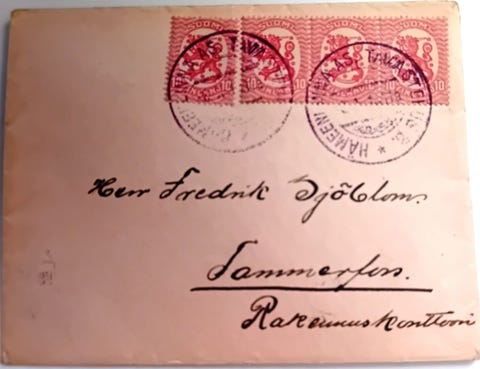 SUOMI SUOMI SUOMI SUOMI
10 10 10 10
HÄMEENLINNA AS. TAVASTEHUS
Herr Fredrik Sjöblom.
Tammerfors.
Rakennuskonttoori